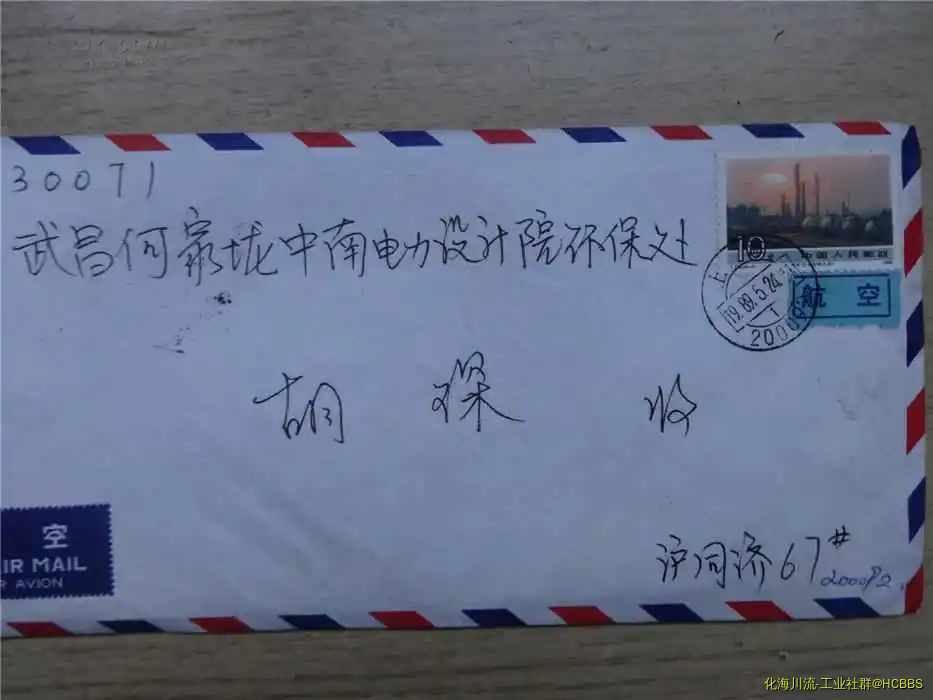 30071
武昌何家垅中南电力设计院环保处
10
中国人民邮政
上
19.89.5.24.
1
20009
航 空
胡 琛 收
沪同济67#
200092
空
IR MAIL
R AVION
化海川流-工业社群@HCBBS